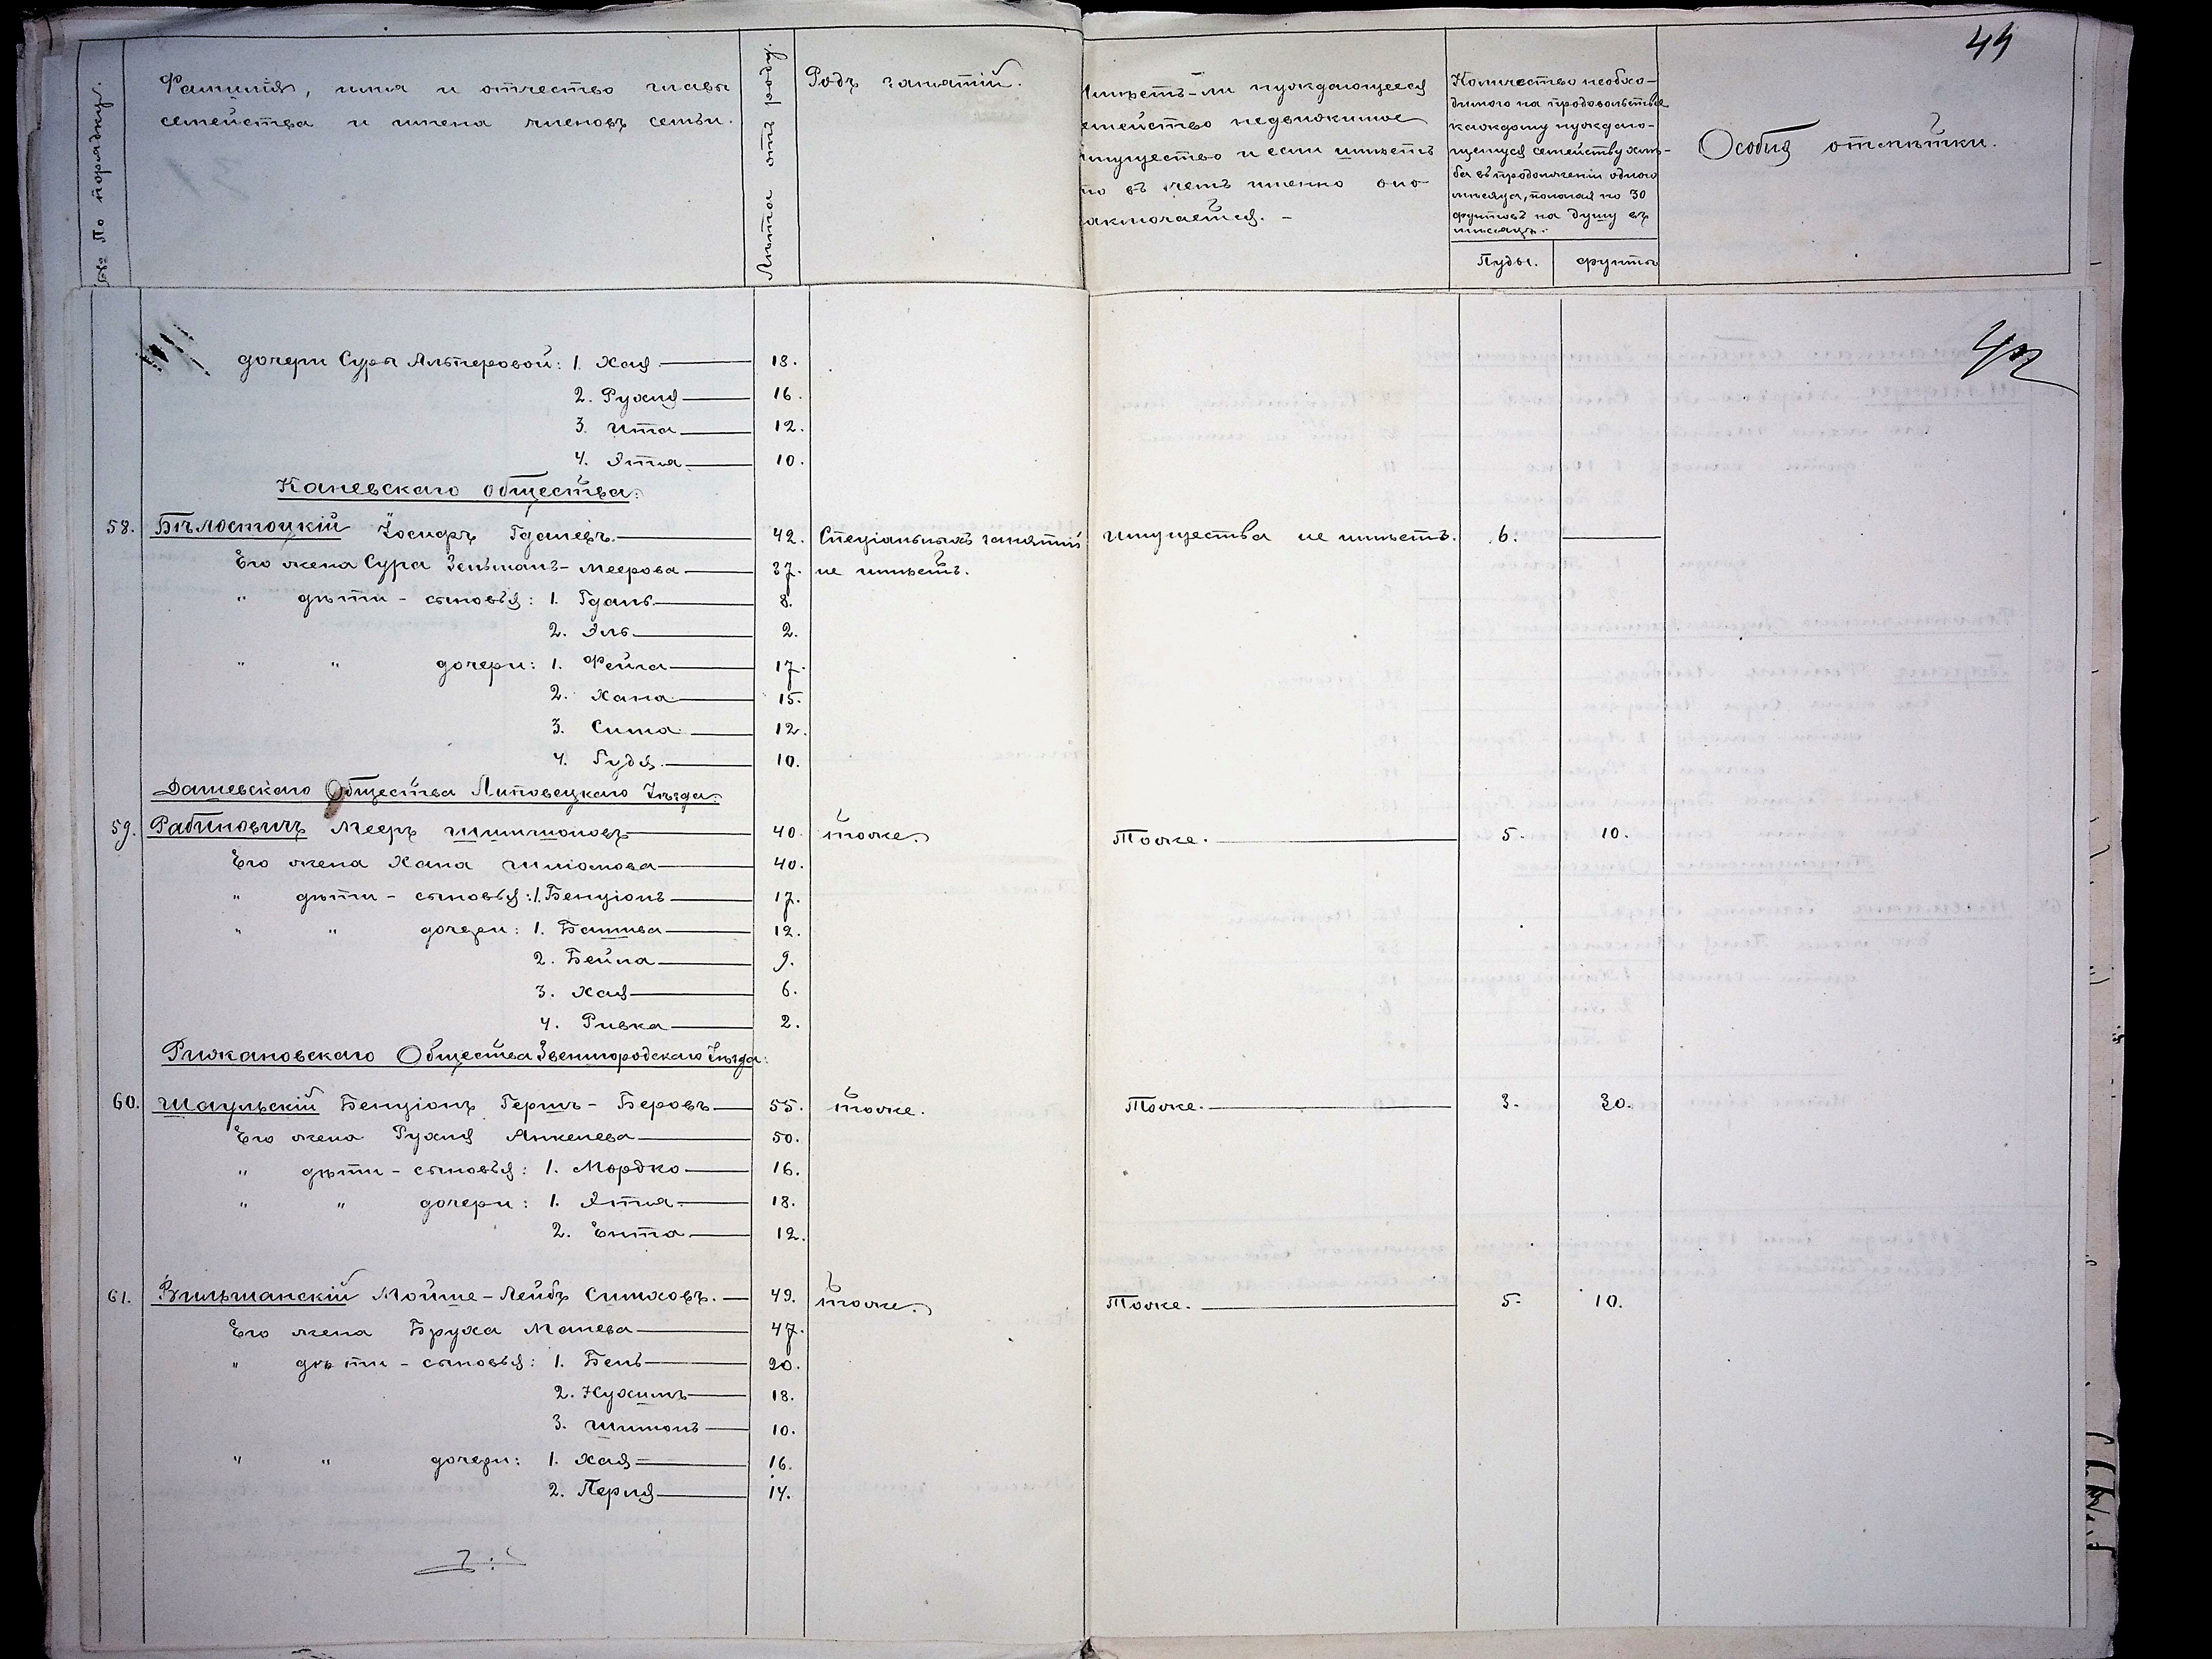 44
№ По порядку.
Фамилія, имя и отчество главы
семейства и имена членовъ семьи.
Лѣта отъ роду.
Родъ занятій.
Имѣетъ-ли нуждающееся
семейство недвижимое
имущество и если имѣетъ
то въ чемъ именно оно
заключается. –
Количество необхо-
димаго на продовольствіе
каждому нуждаю-
щемуся семейству хлѣ-
ба въ продолженіи одного
мѣсяца, полагая по 30
фунтовъ на душу въ
мѣсяцъ.
Пуды. фунты
Особыя отмѣтки.
дочери Суры Альтеровой: 1. Хая 18.
2. Рухля 16.
3. Ита 12.
4. Этля 10.
Каневскаго общества:
58. Бѣлостоцкій Іосифъ Гдалевъ. 42. Спеціальныхъ занятій имущества не имѣетъ. 6.
Его жена Сура Зельманъ-Меерова 37. не имѣетъ.
" дѣти - сыновья: 1. Гдаль 8.
2. Эль 2.
" " дочери: 1. Фейга 17.
2. Хана 15.
3. Сима 12.
4. Гудя 10.
Дашевскаго Общества Липовецкаго Уѣзда:
59. Рабиновичъ Мееръ Шимшоновъ 40. тоже. Тоже. 5. 10.
Его жена Хана Шліомова 40.
" дѣти - сыновья: 1. Бенціонъ 17.
" " дочери: 1. Башива 12.
2. Бейла 9.
3. Хая 6.
4. Ривка 2.
Рижановскаго Общества Звенигородскаго Уѣзда:
60. Шаульскій Бенціонъ Гершъ-Беровъ 55. тоже. Тоже. 3. 30.
Его жена Рухля Анкелева 50.
" дѣти - сыновья: 1. Мордко 16.
" " дочери: 1. Этля 18.
2. Ента 12.
61. Вильшанскій Мойше-Лейбъ Симховъ. 49. тоже. Тоже. 5. 10.
Его жена Бруха Манева 47.
" дѣти - сыновья: 1. Бень 20.
2. Нухимъ 18.
3. Шимонъ 10.
" " дочери: 1. Хая 16.
2. Перля 14.